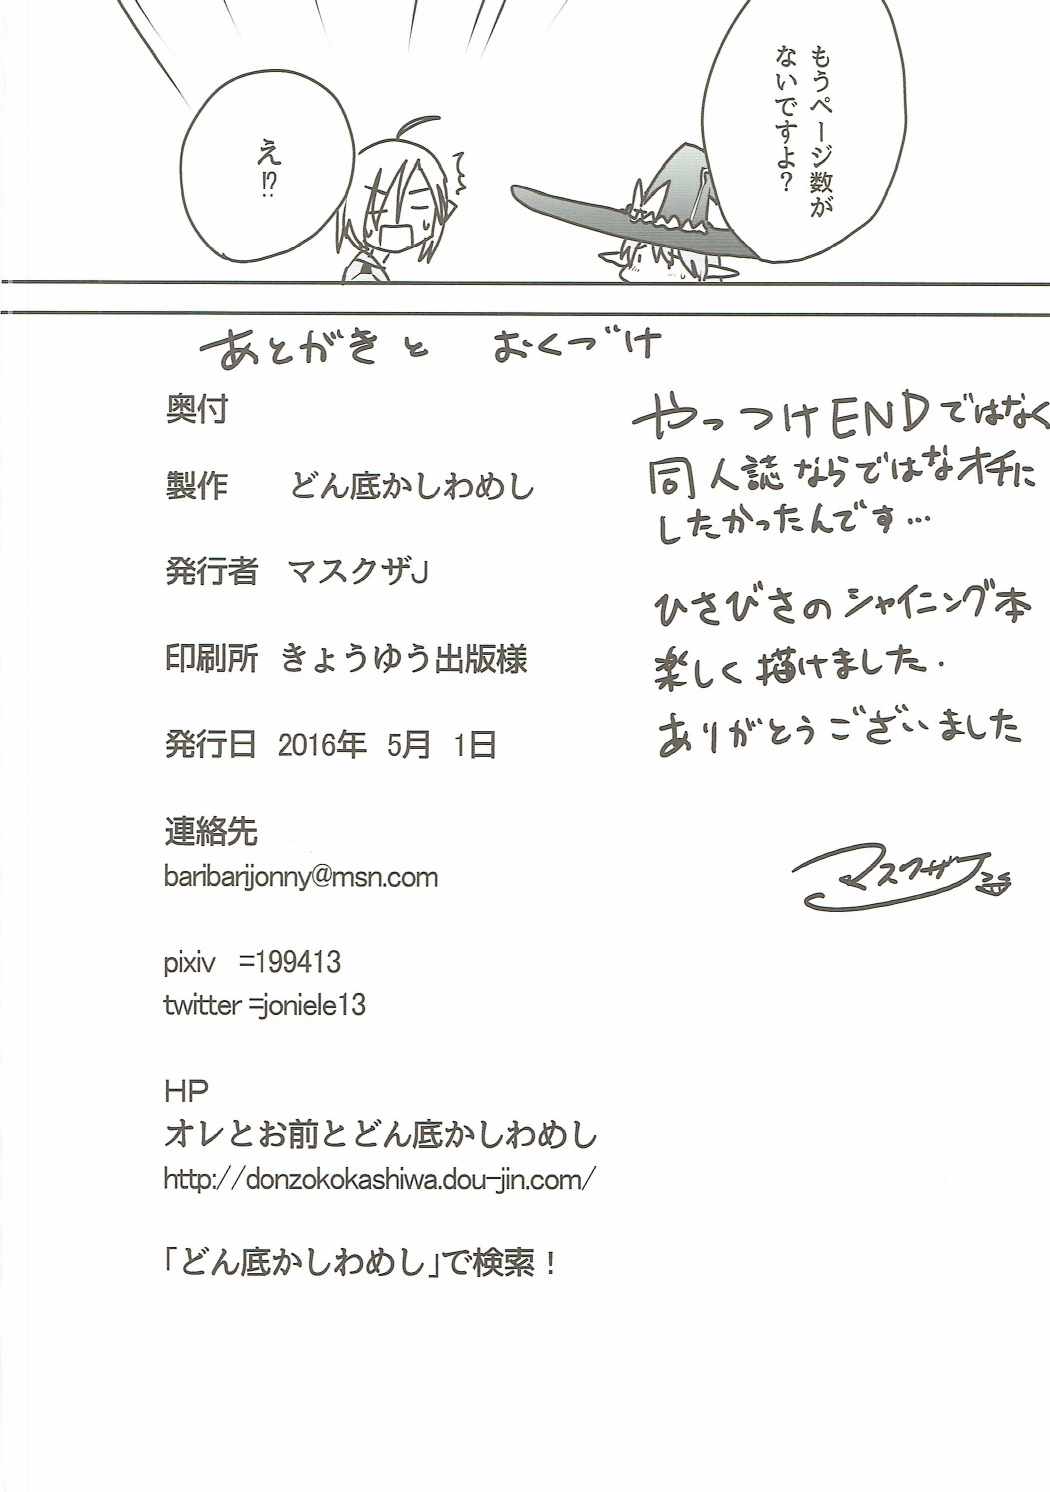 もうページ数が
ないですよ？
え!?
あとがきと おくづけ
奥付
製作 どん底かしわめし
発行者 マスクザJ
印刷所 きょうゆう出版様
発行日 2016年 5月 1日
連絡先
baribarijonny@msn.com
pixiv =199413
twitter =joniele13
HP
オレとお前とどん底かしわめし
http://donzokokashiwa.dou-jin.com/
「どん底かしわめし」で検索！
やっつけENDではなく
同人誌ならではなオチに
したかったんです…
ひさびさのシャイニング本
楽しく描けました.
ありがとうございました
マスクザJ